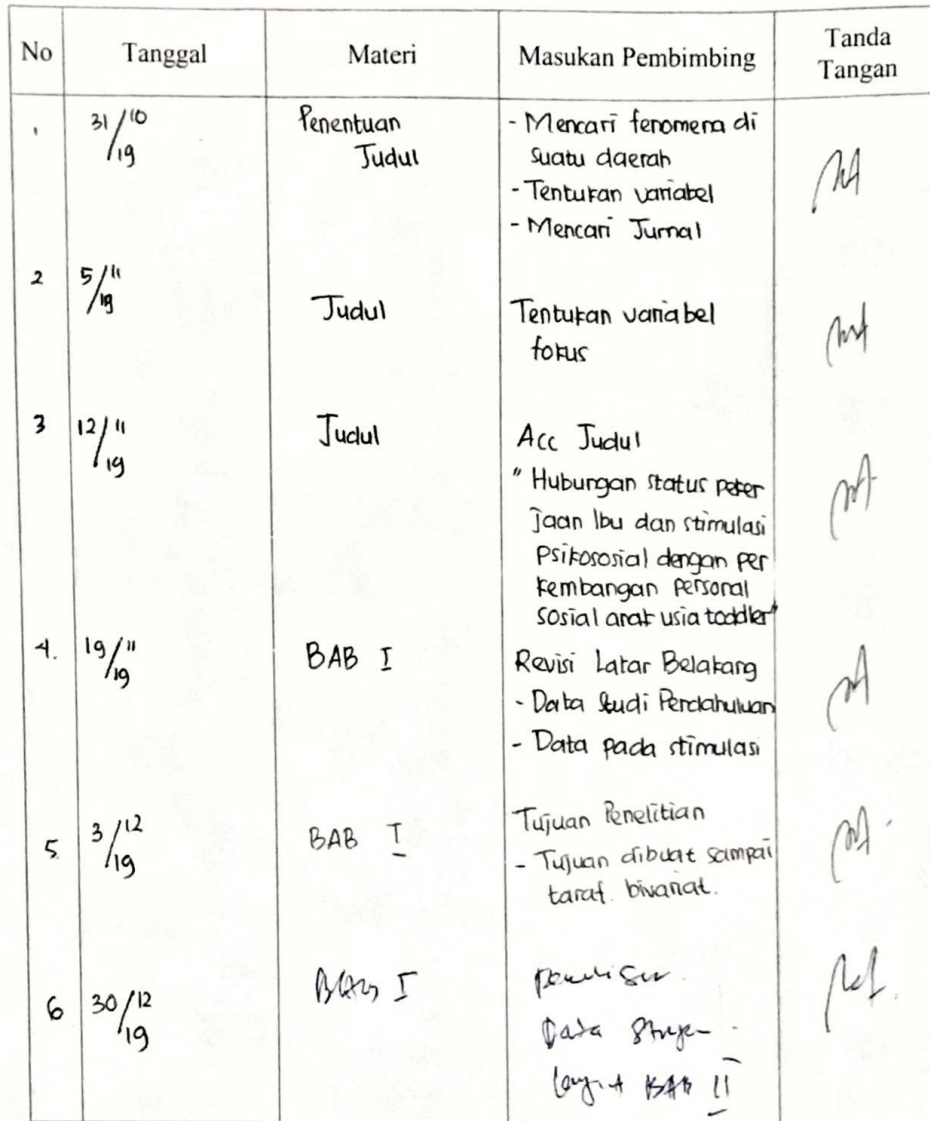 No Tanggal Materi Masukan Pembimbing Tanda Tangan
1 31/10/19 Penentuan Judul
- Mencari fenomena di
suatu daerah
- Tentukan variabel
- Mencari Jurnal
2 5/11/19 Judul
Tentukan variabel
fokus
3 12/11/19 Judul
Acc Judul
"Hubungan status peker
jaan Ibu dan stimulasi
Psikososial dengan per
kembangan Personal
Sosial anak usia toddler"
4. 19/11/19 BAB I
Revisi Latar Belakang
- Data Studi Pendahuluan
- Data pada stimulasi
5. 3/12/19 BAB I
Tujuan Penelitian
- Tujuan dibuat sampai
taraf. bivariat.
6 30/12/19 BAB I
Data
BAB II